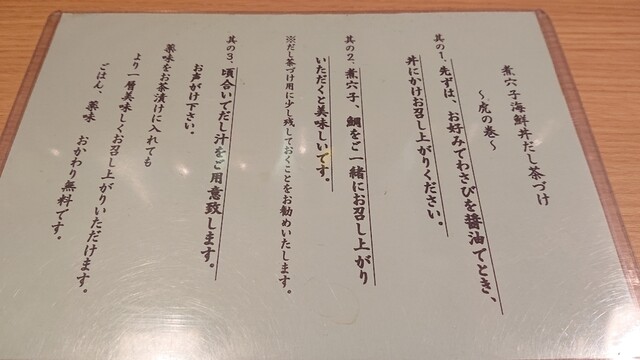 煮穴子海鮮丼だし茶づけ
～虎の巻～
其の1、先ずは、お好みでわさびを醤油でとき、
丼にかけお召し上がりください。
其の2、煮穴子、鯛をご一緒にお召し上がり
いただくと美味しいです。
※だし茶づけ用に少し残しておくことをお勧めいたします。
其の3、頃合いでだし汁をご用意致します。
お声がけ下さい。
薬味をお茶漬けに入れても
より一層美味しくお召し上がりいただけます。
ごはん、薬味　おかわり無料です。